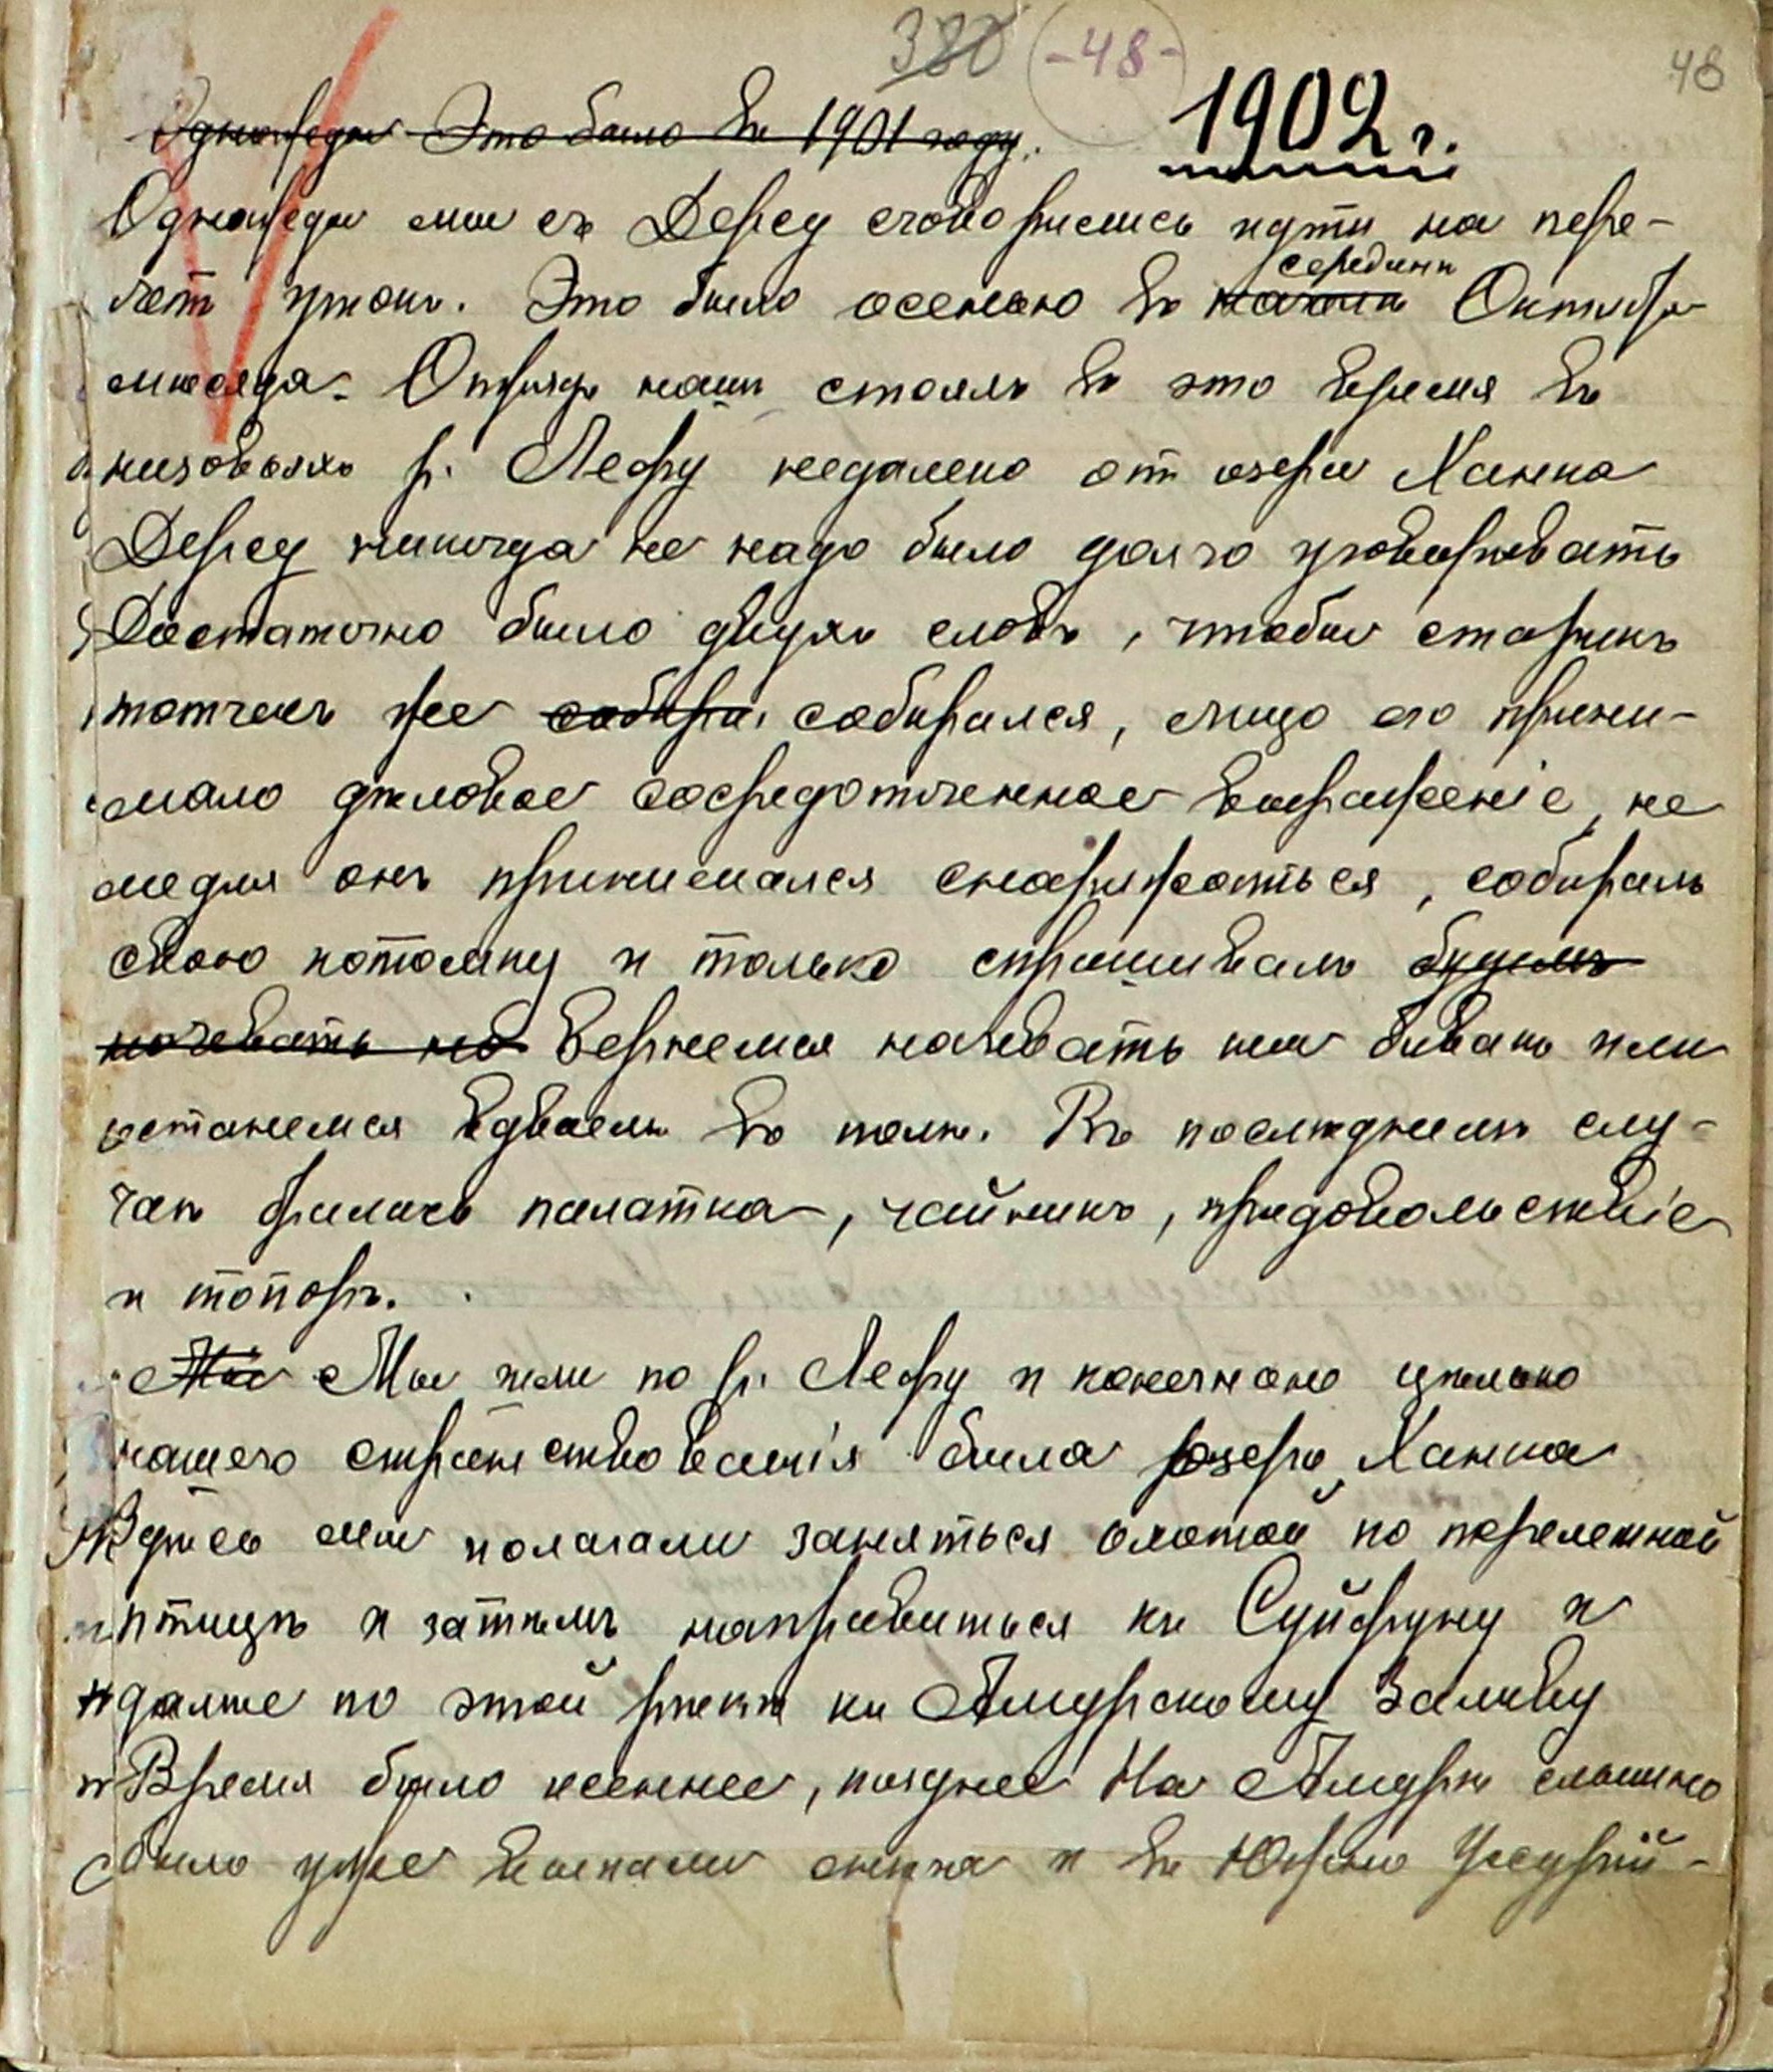 380 -48- 48
Однажды Это было въ 1901 году. 1902 г.
Однажды мы съ Дерсу сговорились идти на пере-
летъ утокъ. Это было осенью въ началѣ серединѣ Октября
мѣсяца. Отрядъ нашъ стоялъ въ это время въ
низовьяхъ р. Лефу недалеко отъ озера Ханка
Дерсу никогда не надо было долго уговаривать
Достаточно было двухъ словъ, чтобы старикъ
тотчасъ же собира собирался, лицо его прини-
мало дѣловое сосредоточенное выраженіе, не
медля онъ принимался снаряжаться, собиралъ
свою котомку и только спрашивалъ будемъ
ночевать на вернемся ночевать на бивакъ или
останемся вдвоемъ въ полѣ. Въ послѣднемъ слу-
чаѣ бралась палатка, чайникъ, продовольствіе
и топоръ.
Мы Мы шли по р. Лефу и конечною цѣлью
нашего странствованія было озеро Ханка
Здѣсь мы полагали заняться охотой по перелетной
птицѣ и затѣмъ направиться къ Суйфуну и
далѣе по этой рѣкѣ къ Амурскому заливу
Время было осеннее, позднее На Амурѣ слышно
было уже выпали снѣга и въ Южно Уссурій-